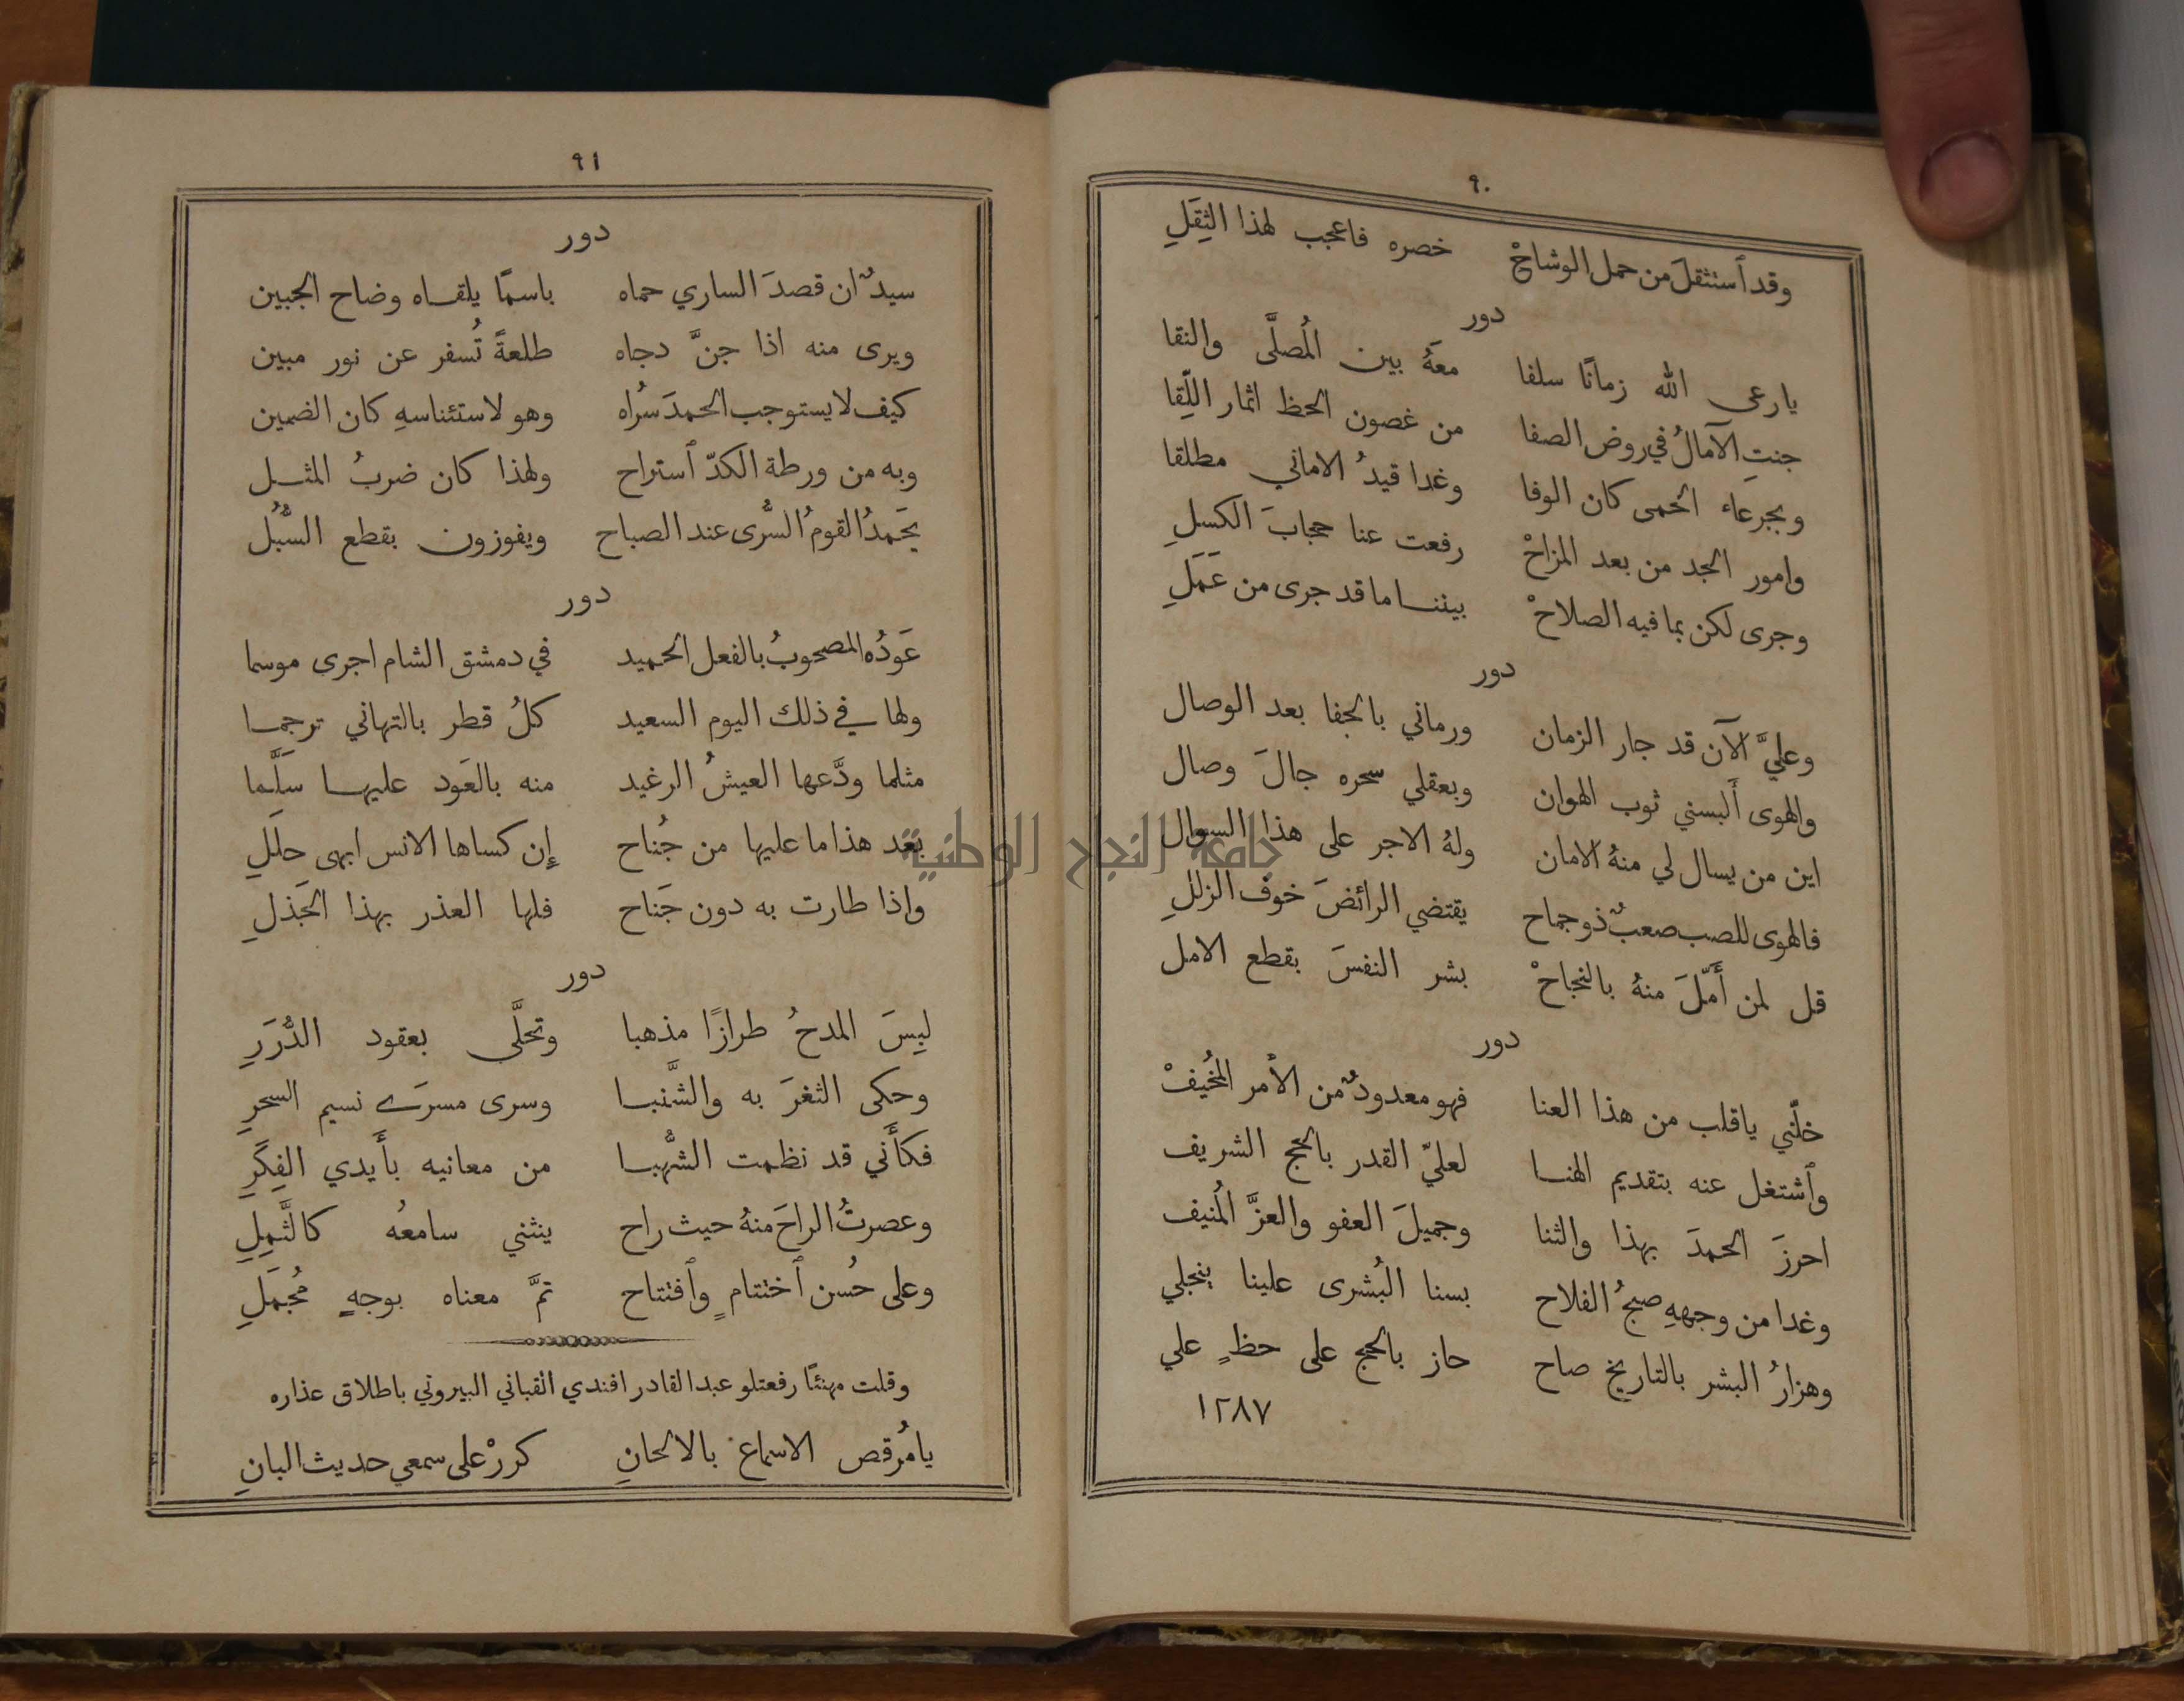 ٩٠
وقد ٱستثقلَ من حمل الوشاحْ خصره فاعجب لهذا الثِقَلِ
دور
يارعى الله زمانًا سلفا معهُ بين المُصلَّى والنقا
جنتِ الآمالُ في روض الصفا من غصون الحظ اثمار اللِّقا
وبجرعاء الحمى كان الوفا وغدا قيدُ الاماني مطلقا
وامور الجد من بعد المزاحْ رفعت عنا حجابَ الكسلِ
وجرى لكن بما فيه الصلاحْ بيننا ما قد جرى من عَمَلِ
دور
وعليَّ الآن قد جار الزمان ورماني بالجفا بعد الوصال
والهوى أَلبسني ثوب الهوان وبعقلي سحره جالَ وصال
اين من يسال لي منهُ الامان ولهُ الاجر على هذا السوال
فالهوى للصب صعبٌ ذو جماح يقتضي الرائضَ خوف الزللِ
قل لمن أَمّلَ منهُ بالنجاحْ بشر النفسَ بقطع الامل
دور
خلّني ياقلب من هذا العنا فهو معدودٌ من الأمر المُخيفْ
وٱشتغل عنه بتقديم الهنا لعليّ القدر بالحج الشريف
احرزَ الحمدَ بهذا والثنا وجميلَ العفو والعزَّ المُنيف
وغدا من وجههِ صبحُ الفلاح بسنا البُشرى علينا ينجلي
وهزارُ البشر بالتاريخ صاح حاز بالحج على حظٍ علي
١٢٨٧
٩١
دور
سيدٌ ان قصدَ الساري حماه باسمًا يلقاه وضاح الجبين
ويرى منه اذا جنَّ دجاه طلعةً تُسفر عن نور مبين
كيف لا يستوجب الحمدَ سُراه وهو لاستئناسهِ كان الضمين
وبه من ورطة الكدّ ٱستراح ولهذا كان ضربُ المثل
يَحمدُ القومُ السُّرى عند الصباح ويفوزون بقطع السُّبُل
دور
عَودُه المصحوبُ بالفعل الحميد في دمشق الشام اجرى موسما
ولها في ذلك اليوم السعيد كلُ قطر بالتهاني ترجما
مثلما ودَّعها العيشُ الرغيد منه بالعَود عليها سلَّما
بعد هذا ما عليها من جُناح إن كساها الانس ابهى حِلَلِ
واذا طارت به دون جَناح فلها العذر بهذا الجَذلِ
دور
لبِسَ المدحُ طرازًا مذهبا وتحلَّى بعقود الدُّرَرِ
وحكى الثغرَ به والشَّنبا وسرى مسرَے نسيم السحرِ
فكأَني قد نظمت الشُّهبا من معانيه بأَيدي الفِكَرِ
وعصرتُ الراحَ منهُ حيث راح ينثني سامعُه كالثَّمِلِ
وعلى حُسن ٱختتامٍ وٱفتتاح تمَّ معناه بوجهٍ مُجمَلِ
وقلت مهنئًا رفعتلو عبد القادر افندي القباني البيروتي باطلاق عذاره
يا مُرقص الاسماع بالالحانِ كررْ على سمعي حديث البانِ
جامعة النجاح الوطنية